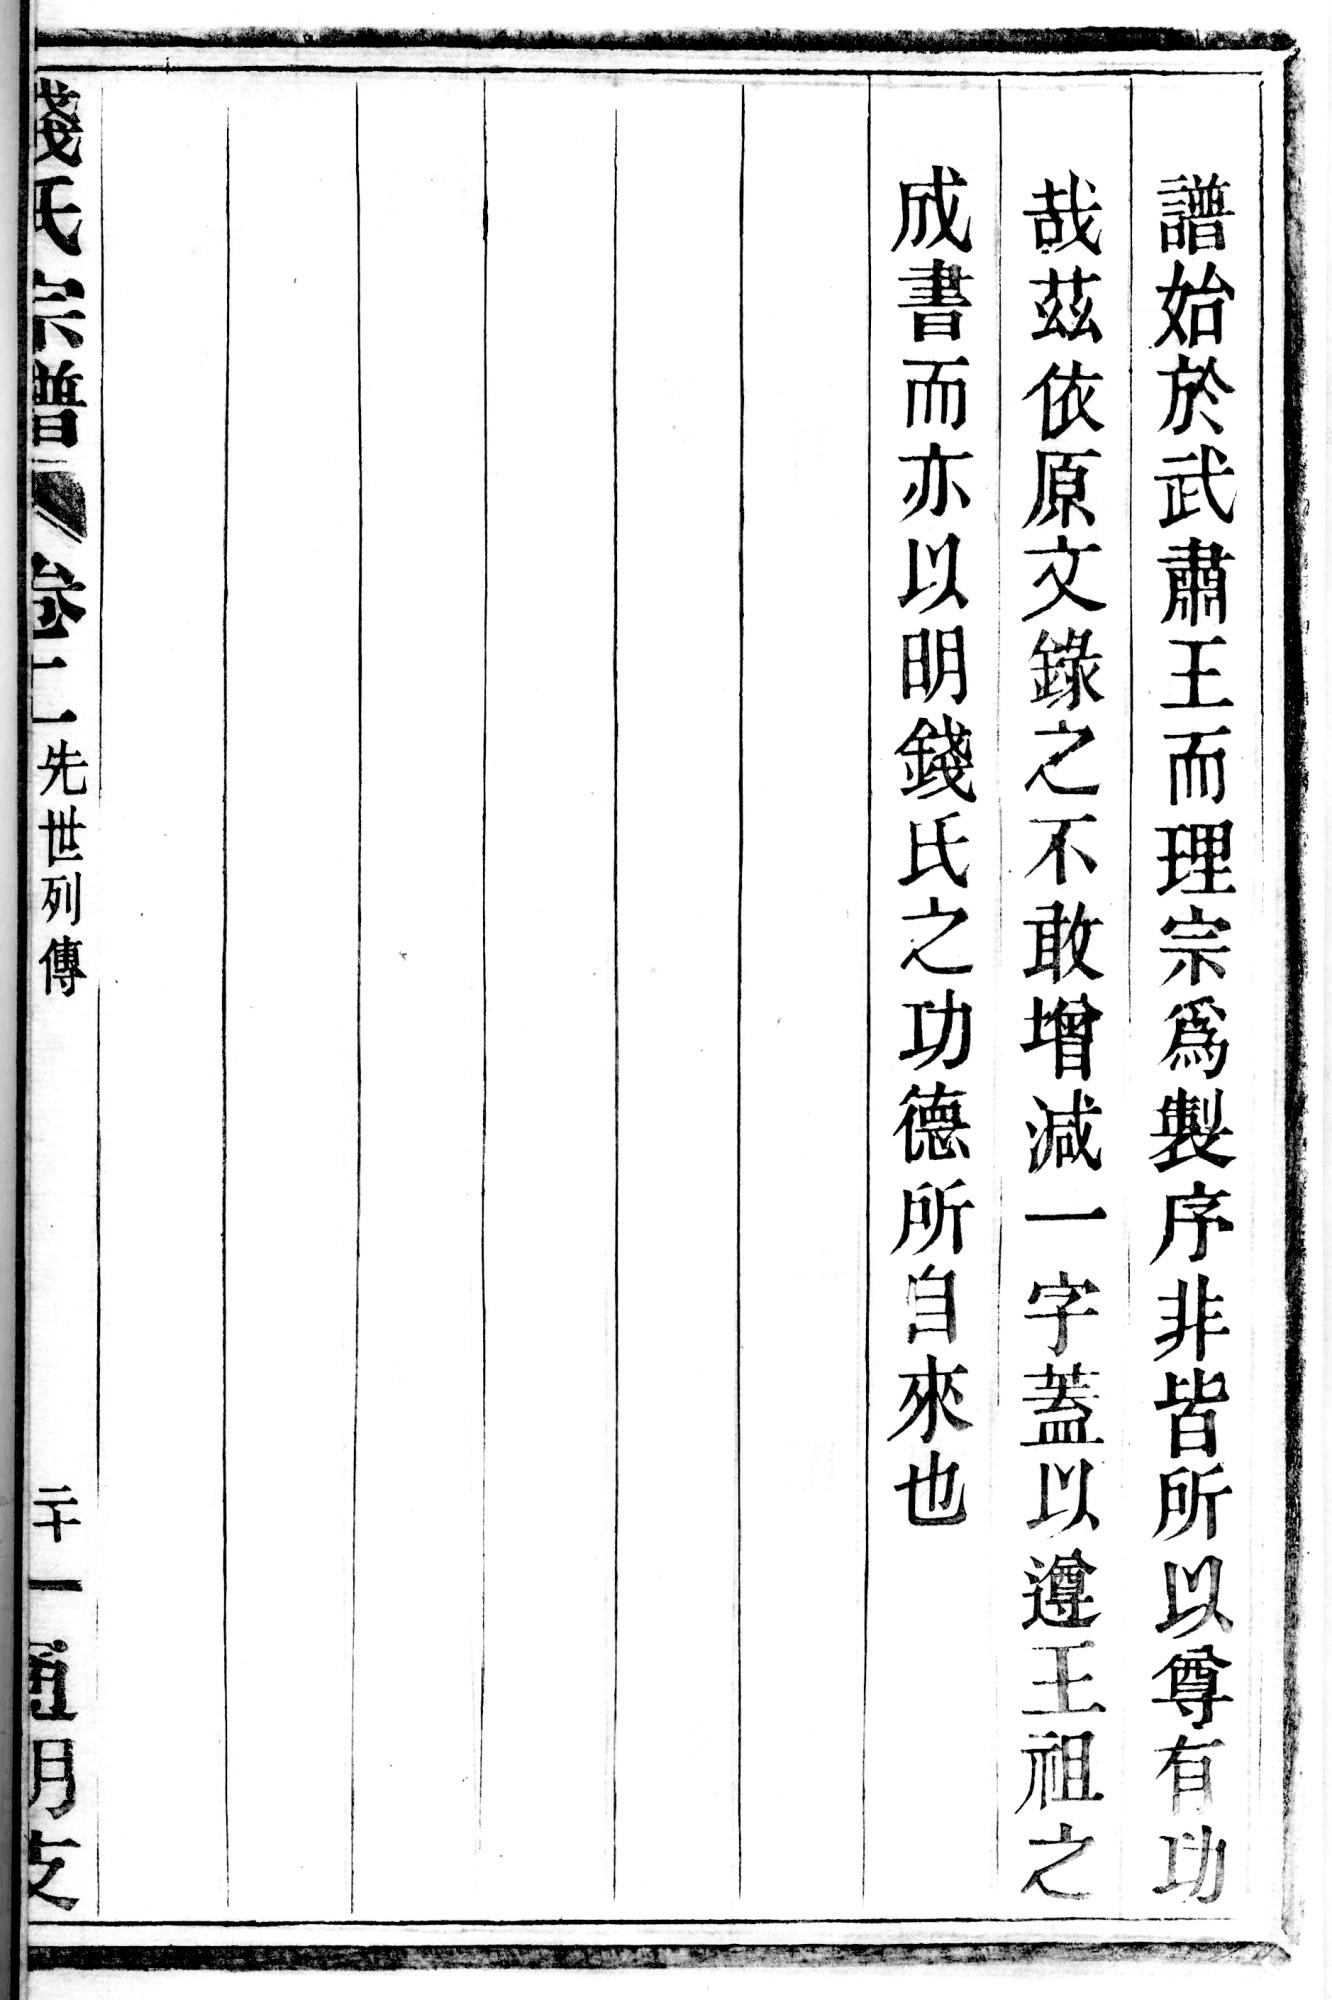 譜始於武肅王而理宗爲製序非皆所以尊有功
哉茲依原文錄之不敢增減一字蓋以遵王祖之
成書而亦以明錢氏之功德所自來也
錢氏宗譜 卷二 先世列傳 二十一 通明支